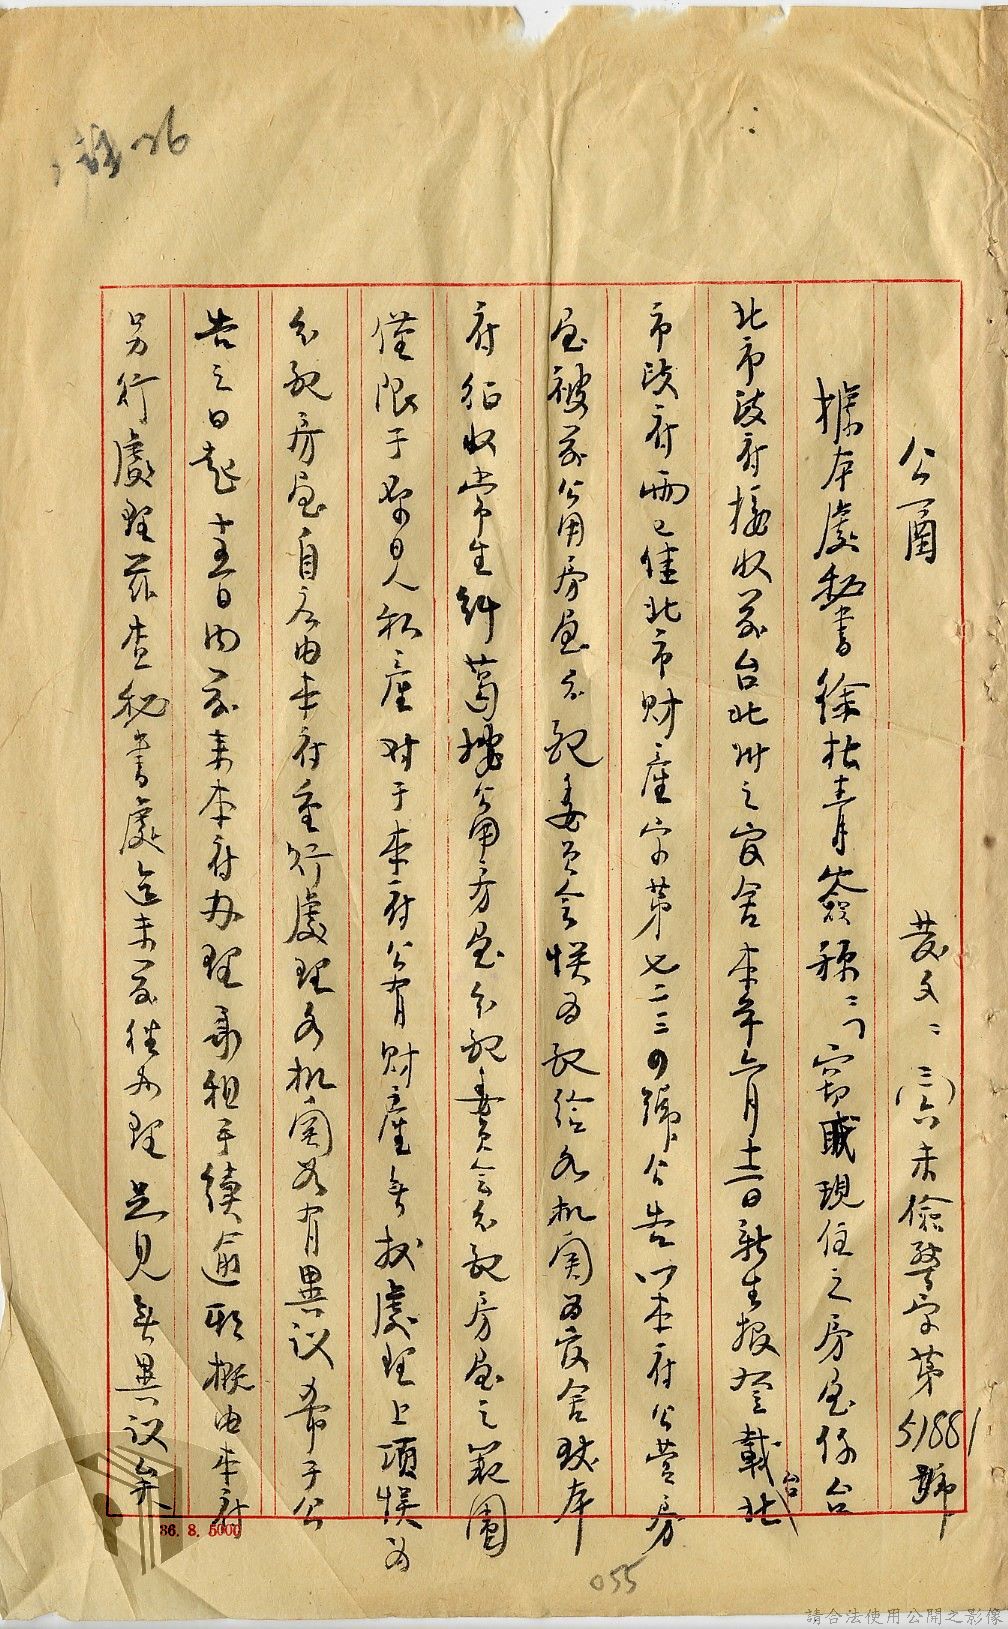 公函
發文：(三六)未儉警字第51881號
據本處秘書徐 青簽稱：「竊職現住之房屋係台
北市政府接收前台北州之官舍本年六月十二日新生報登載台北
市政府丙巳佳北市財產字第七二三〇號公告以本府公營房
屋被前公用房屋分配委員會悞為配給各机関為官舍致本
府征收常生糾葛據公用房屋分配委員會分配房屋之範圍
僅限于日人私產对于本府公有財產無权處理上項悞为
分配房屋自应由本府重行處理各机関如有異议希于公
告之日起十五日内前来本府办理承租手續逾期概由本府
另行處理茲查秘書處迄未前往办理足見無異议矣
26
055
36. 8. 5000
請合法使用公開之影像